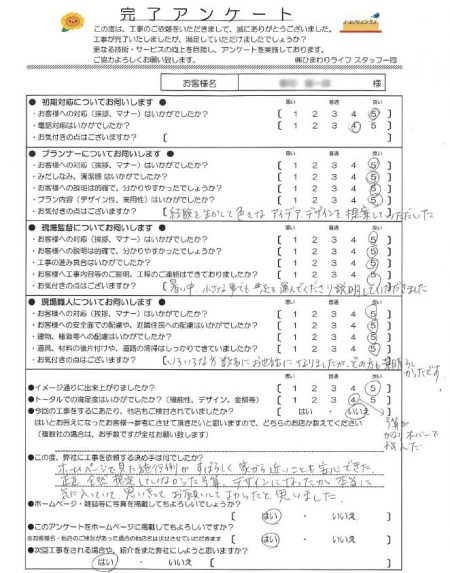 完了アンケート
この度は、工事のご依頼をいただきまして、誠にありがとうございました。
工事が完了いたしましたが、満足していただけましたでしょうか?
更なる技術・サービスの向上を目指し、アンケートを実施しております。
ご協力よろしくお願い致します。
㈱ひまわりライフ スタッフ一同
お客様名 様
● 初期対応についてお伺いします ● 悪い 普通 良い
・お客様への対応(挨拶、マナー)はいかがでしたか? [ 1 2 3 4 5 ]
・電話対応はいかがでしたか? [ 1 2 3 4 5 ]
・お気付きの点はございますか? [ ]
● プランナーについてお伺いします ● 悪い 普通 良い
・お客様への対応(挨拶、マナー)はいかがでしたか? [ 1 2 3 4 5 ]
・みだしなみ、清潔感はいかがでしたか? [ 1 2 3 4 5 ]
・お客様への説明は的確で、分かりやすかったでしょうか? [ 1 2 3 4 5 ]
・プラン内容(デザイン性、実用性)はいかがでしたか? [ 1 2 3 4 5 ]
・お気付きの点はございますか? [経験を生かして色々なアイデア、デザインを提案していただいた
● 現場監督についてお伺いします ● 悪い 普通 良い
・お客様への対応(挨拶、マナー)はいかがでしたか? [ 1 2 3 4 5 ]
・お客様への説明は的確で、分かりやすかったでしょうか? [ 1 2 3 4 5 ]
・工事の進み具合はいかがでしたか? [ 1 2 3 4 5 ]
・お客様へ工事内容等のご説明、工程のご連絡はできておりましたか? [ 1 2 3 4 5 ]
・お気付きの点はございますか? [暑い中、小さな事でも 足を運んでくださり説明していただきました
● 現場職人についてお伺いします ● 悪い 普通 良い
・お客様への対応(挨拶、マナー)はいかがでしたか? [ 1 2 3 4 5 ]
・お客様への安全面での配慮や、近隣住民への配慮はいかがでしたか? [ 1 2 3 4 5 ]
・建物、植栽等への配慮はいかがでしたか? [ 1 2 3 4 5 ]
・道具、材料の後片付けや、道路の清掃はしっかりできていましたか? [ 1 2 3 4 5 ]
・お気付きの点はございますか? [いろいろな方 お世話になりましたが、どの方も
かったです。
●イメージ通りに出来上がりましたか? [ 1 2 3 4 5 ]
●トータルでの満足度はいかがでしたか?(機能性、デザイン、金額等) [ 1 2 3 4 5 ]
●今回の工事をするにあたり、他店もご検討されていましたか? [ はい ・ いいえ ]
予算が
かなりオーバーで
はいとお答えになったお客様 参考にさせて頂きたいと思いますので、どちらのお店か教えてください
(複数社の場合は、お手数ですが全社お願い致します)
●この度、弊社に工事を依頼する決め手は何でしたか?
ホームページで見た施行例がすばらしく 家から近いことも安心できた
正直 全然想定していなかった予算、デザインになったが 本当に
気に入っていて 思いきってお願いしてよかったと思いました。
●ホームページ・雑誌等に写真を掲載してもよろしいでしょうか?
[ はい ・ いいえ ]
●このアンケートをホームページに掲載してもよろしいですか?
※お客様名・他店のご検討があった場合の他店名は伏せさせていただきます [ はい ・ いいえ ]
●次回工事をされる場合や、紹介をまた弊社にしようと思いますか?
[ はい ・ いいえ ]